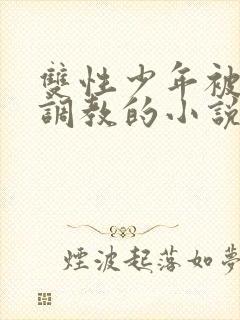 雙性少年被
調教的小說
煙波起落如夢